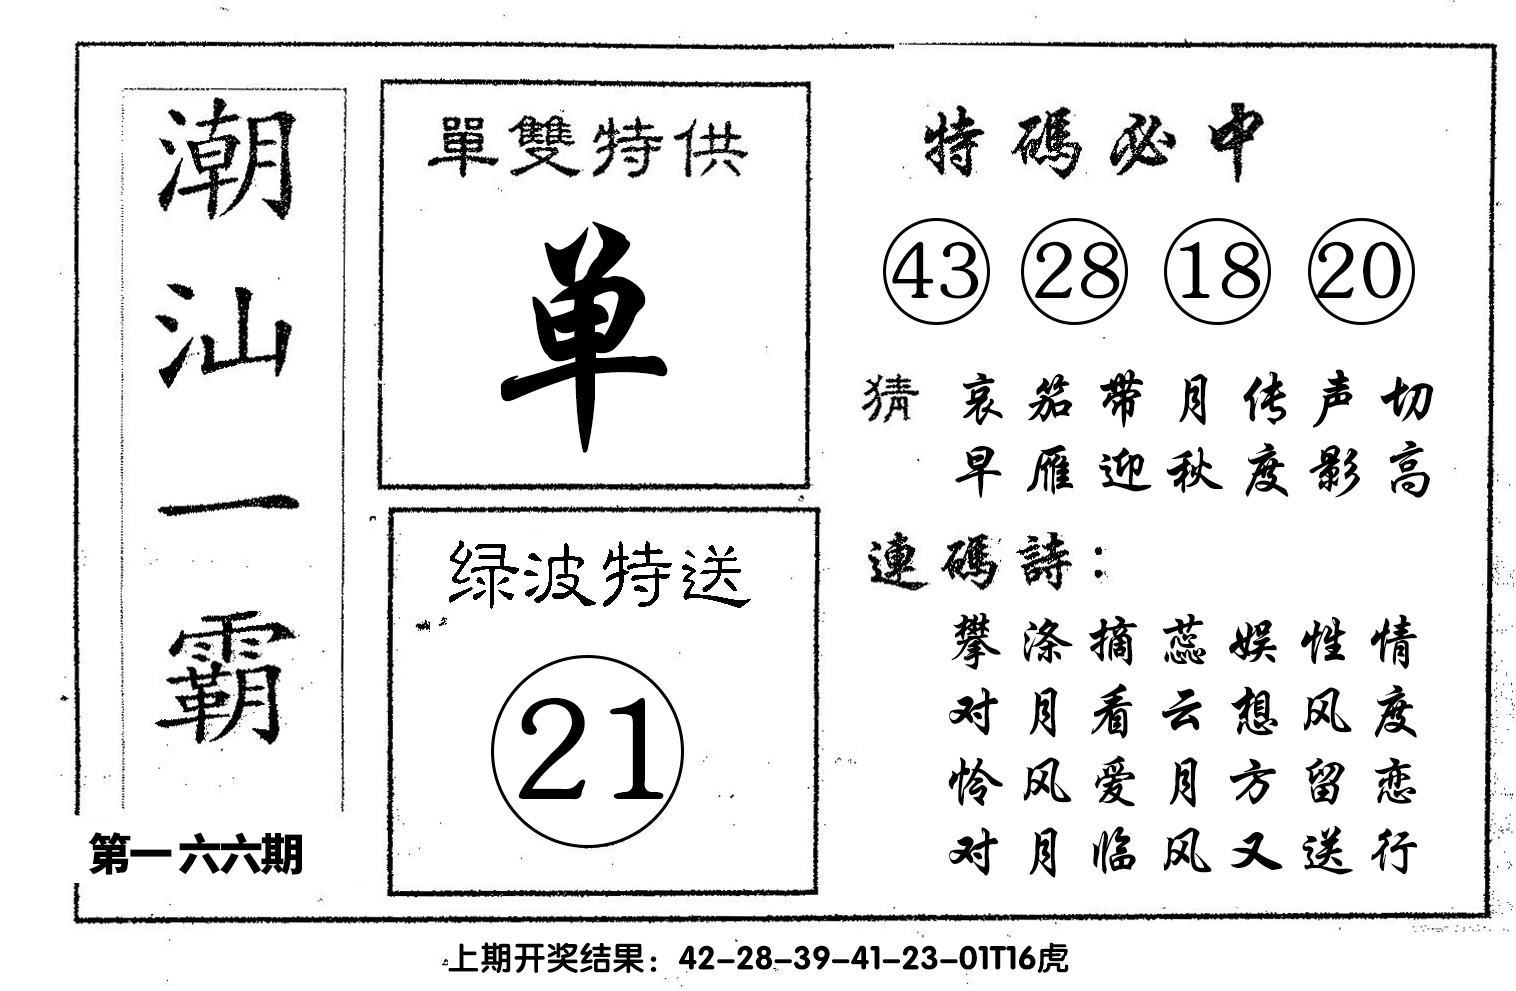 潮汕一霸
第一六六期
單雙特供
单
绿波特送
21
特碼必中
43 28 18 20
猜 哀笳带月传声切
早雁迎秋度影高
連碼詩：
攀涤摘蕊娱性情
对月看云想风度
怜风爱月方留恋
对月临风又送行
上期开奖结果：42-28-39-41-23-01T16虎